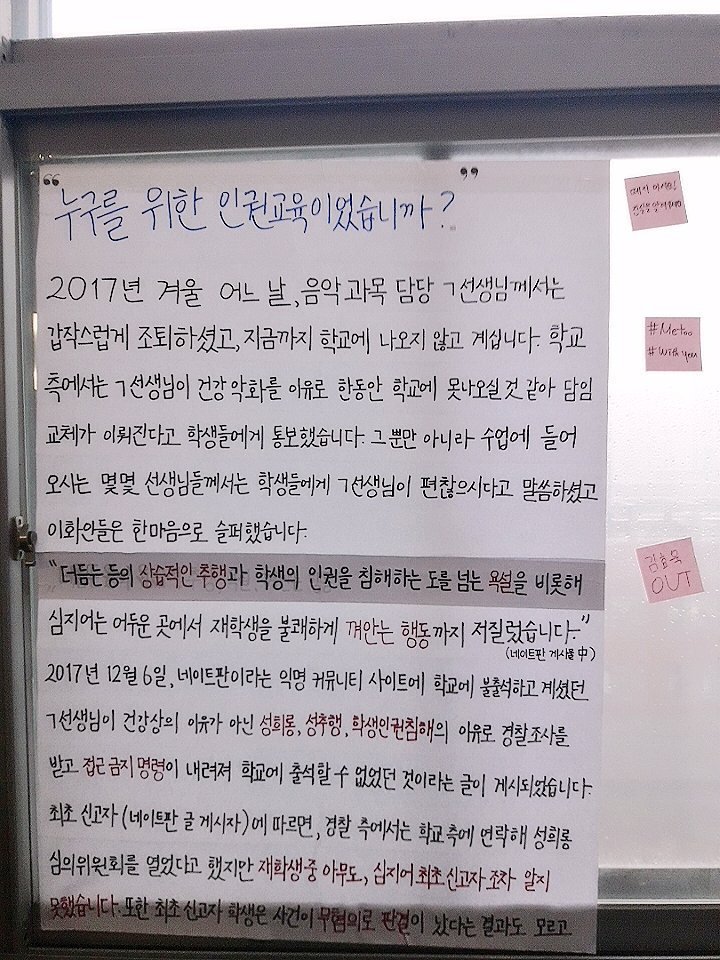 " 누구를 위한 인권교육이었습니까? "
2017년 겨울 어느 날, 음악 과목 담당 ㄱ선생님께서는
갑작스럽게 조퇴하셨고, 지금까지 학교에 나오지 않고 계십니다. 학교
측에서는 ㄱ선생님이 건강 악화를 이유로 한동안 학교에 못나오실 것 같아 담임
교체가 이뤄진다고 학생들에게 통보했습니다. 그 뿐만 아니라 수업에 들어
오시는 몇몇 선생님들께서는 학생들에게 ㄱ선생님이 편찮으시다고 말씀하셨고
이화안들은 한마음으로 슬퍼했습니다.
"더듬는 등의 상습적인 추행과 학생의 인권을 침해하는 도를 넘는 욕설을 비롯해
심지어는 어두운 곳에서 재학생을 불쾌하게 껴안는 행동까지 저질렀습니다."
(네이트판 게시물 中)
2017년 12월 6일, 네이트판이라는 익명 커뮤니티 사이트에 학교에 불출석하고 계셨던
ㄱ선생님이 건강상의 이유가 아닌 성희롱, 성추행, 학생인권침해의 이유로 경찰조사를
받고 접근 금지 명령이 내려져 학교에 출석할 수 없었던 것이라는 글이 게시되었습니다.
최초 신고자 (네이트판 글 게시자)에 따르면, 경찰 측에서는 학교측에 연락해 성희롱
심의위원회를 열었다고 했지만 재학생 중 아무도, 심지어 최초 신고자 조차 알지
못했습니다. 또한 최초 신고자 학생은 사건이 무혐의로 판결이 났다는 결과도 모르고
#Metoo
#With you
김효욱
OUT